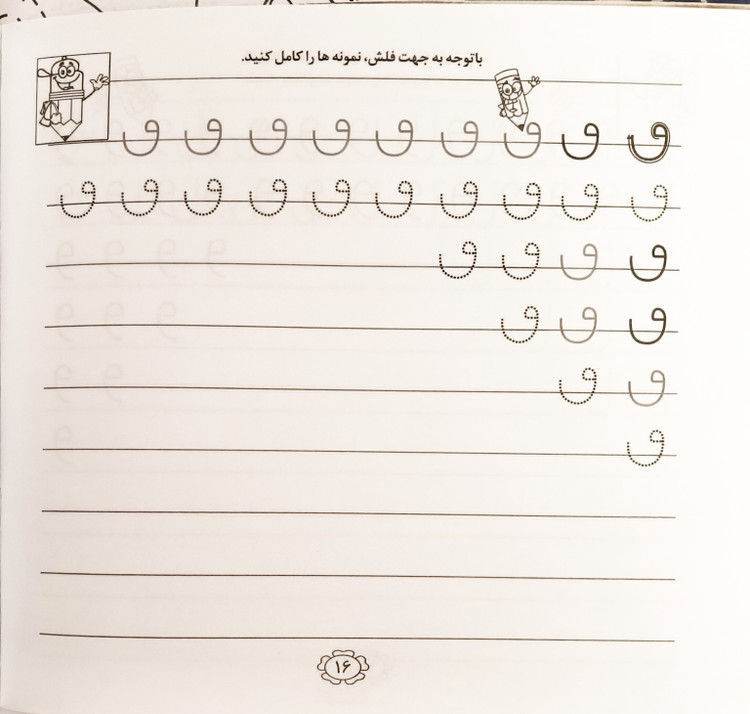 باتوجه به جهت فلش، نمونه ها را کامل کنید.
ٯ ٯ ٯ ٯ ٯ ٯ ٯ ٯ ٯ
ٯ ٯ ٯ ٯ ٯ ٯ ٯ ٯ ٯ ٯ
ٯ ٯ ٯ ٯ
ٯ ٯ ٯ
ٯ ٯ
ٯ
۱۶